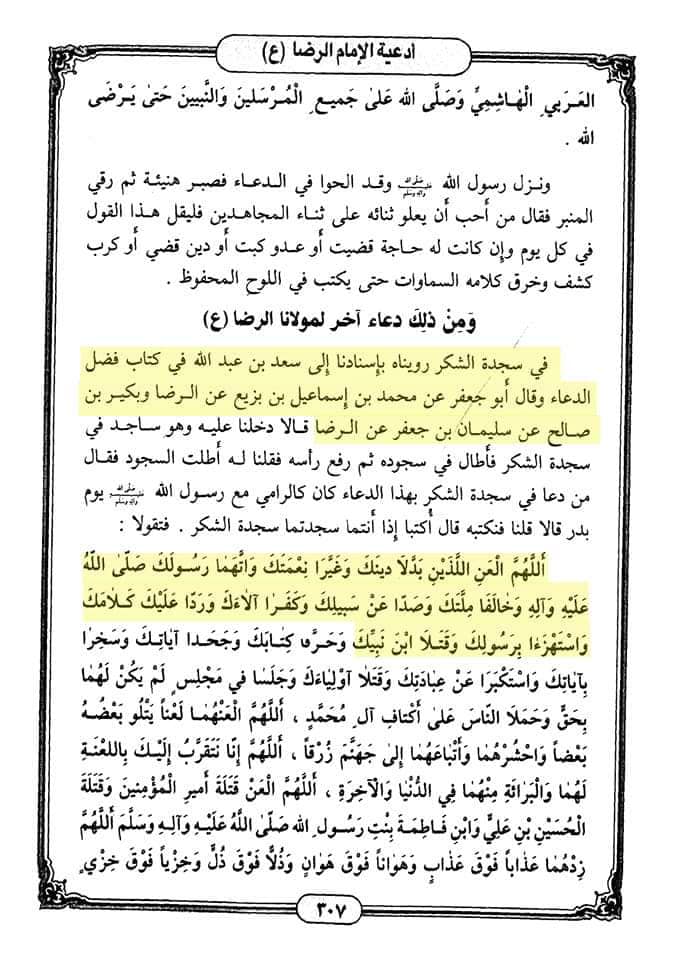 أدعية الإمام الرضا (ع)
العَرَبيِ الْهاشِمِيِّ وَصَلَّى الله عَلىٰ جَميعِ الْمُرْسَلينَ وَالنَّبيينَ حَتىٰ يَرْضَى
الله .
ونزل رسول الله ﷺ وقد الحوا في الدعاء فصبر هنيئة ثم رقي
المنبر فقال من أحب أن يعلو ثنائه على ثناء المجاهدين فليقل هذا القول
في كل يوم وإن كانت له حاجة قضيت أو عدو كبت أو دين قضي أو كرب
كشف وخرق كلامه السماوات حتى يكتب في اللوح المحفوظ .
وَمِنْ ذلِكَ دعاء آخر لمولانا الرضا (ع)
في سجدة الشكر رويناه بإسنادنا إلى سعد بن عبد الله في كتاب فضل
الدعاء وقال أبو جعفر عن محمد بن إسماعيل بن بزيع عن الرضا وبكير بن
صالح عن سليمان بن جعفر عن الرضا قالا دخلنا عليه وهو ساجد في
سجدة الشكر فأطال في سجوده ثم رفع رأسه فقلنا له أطلت السجود فقال
من دعا في سجدة الشكر بهذا الدعاء كان كالرامي مع رسول الله ﷺ يوم
بدر قالا قلنا فنكتبه قال أكتبا إذا أنتما سجدتما سجدة الشكر . فتقولا :
أَللّٰهُمَّ الْعَنِ اللَّذَيْنِ بَدَّلاَ دينَكَ وَغَيَّرَا نِعْمَتَكَ وَاتَّهَمَا رَسُولَكَ صَلَّى اللّٰهُ
عَلَيْهِ وَآلِهِ وَخَالَفَا مِلَّتَكَ وَصَدَّا عَنْ سَبيلِكَ وَكَفَرَا آلاءَكَ وَرَدَّا عَلَيْكَ كَلَامَكَ
وَاسْتَهْزَءَا بِرَسُولِكَ وَقَتَلَا ابْنَ نَبِيِّكَ وَحَرَّفا كِتَابَكَ وَجَحَدا آيَاتِكَ وَسَخِرَا
بِآيَاتِكَ وَاسْتَكْبَرَا عَنْ عِبَادَتِكَ وَقَتَلَا أَوْلِيَاءَكَ وَجَلَسَا في مَجْلِسٍ لَمْ يَكُنْ لَهُمَا
بِحَقٍّ وَحَمَلَا النّاسَ عَلىٰ أَكْتافِ آلِ مُحَمَّدٍ ، أَللّٰهُمَّ الْعَنْهُمٰا لَعْناً يَتْلُو بَعْضُهُ
بَعْضاً وَاحْشُرْهُمٰا وَأَتْبَاعَهُمٰا إِلىٰ جَهَنَّمَ زُرْقاً ، أَللّٰهُمَّ إِنّا نَتَقَرَّبُ إِلَيْكَ بِاللَّعْنَةِ
لَهُمٰا وَالْبَرَائَةِ مِنْهُمٰا فِي الدُّنْيٰا وَالْآخِرَةِ ، أَللّٰهُمَّ الْعَنْ قَتَلَةَ أَميرِ الْمُؤْمِنينَ وَقَتَلَةَ
الْحُسَيْنِ بْنِ عَلِيٍّ وَابْنِ فَاطِمَةَ بِنْتِ رَسُولِ الله صَلَّى اللّٰهُ عَلَيْهِ وَآلِهِ وَسَلَّمَ أَللّٰهُمَّ
زِدْهُمٰا عَذٰاباً فَوْقَ عَذٰابٍ وَهَوٰاناً فَوْقَ هَوٰانٍ وَذُلّاً فَوْقَ ذُلٍّ وَخِزْياً فَوْقَ خِزْيٍ
٣٠٧